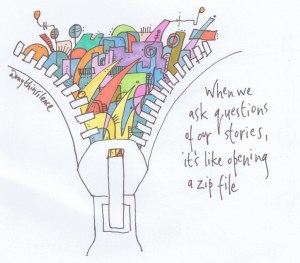 When we
ask questions
of our stories,
it's like opening
a zip file